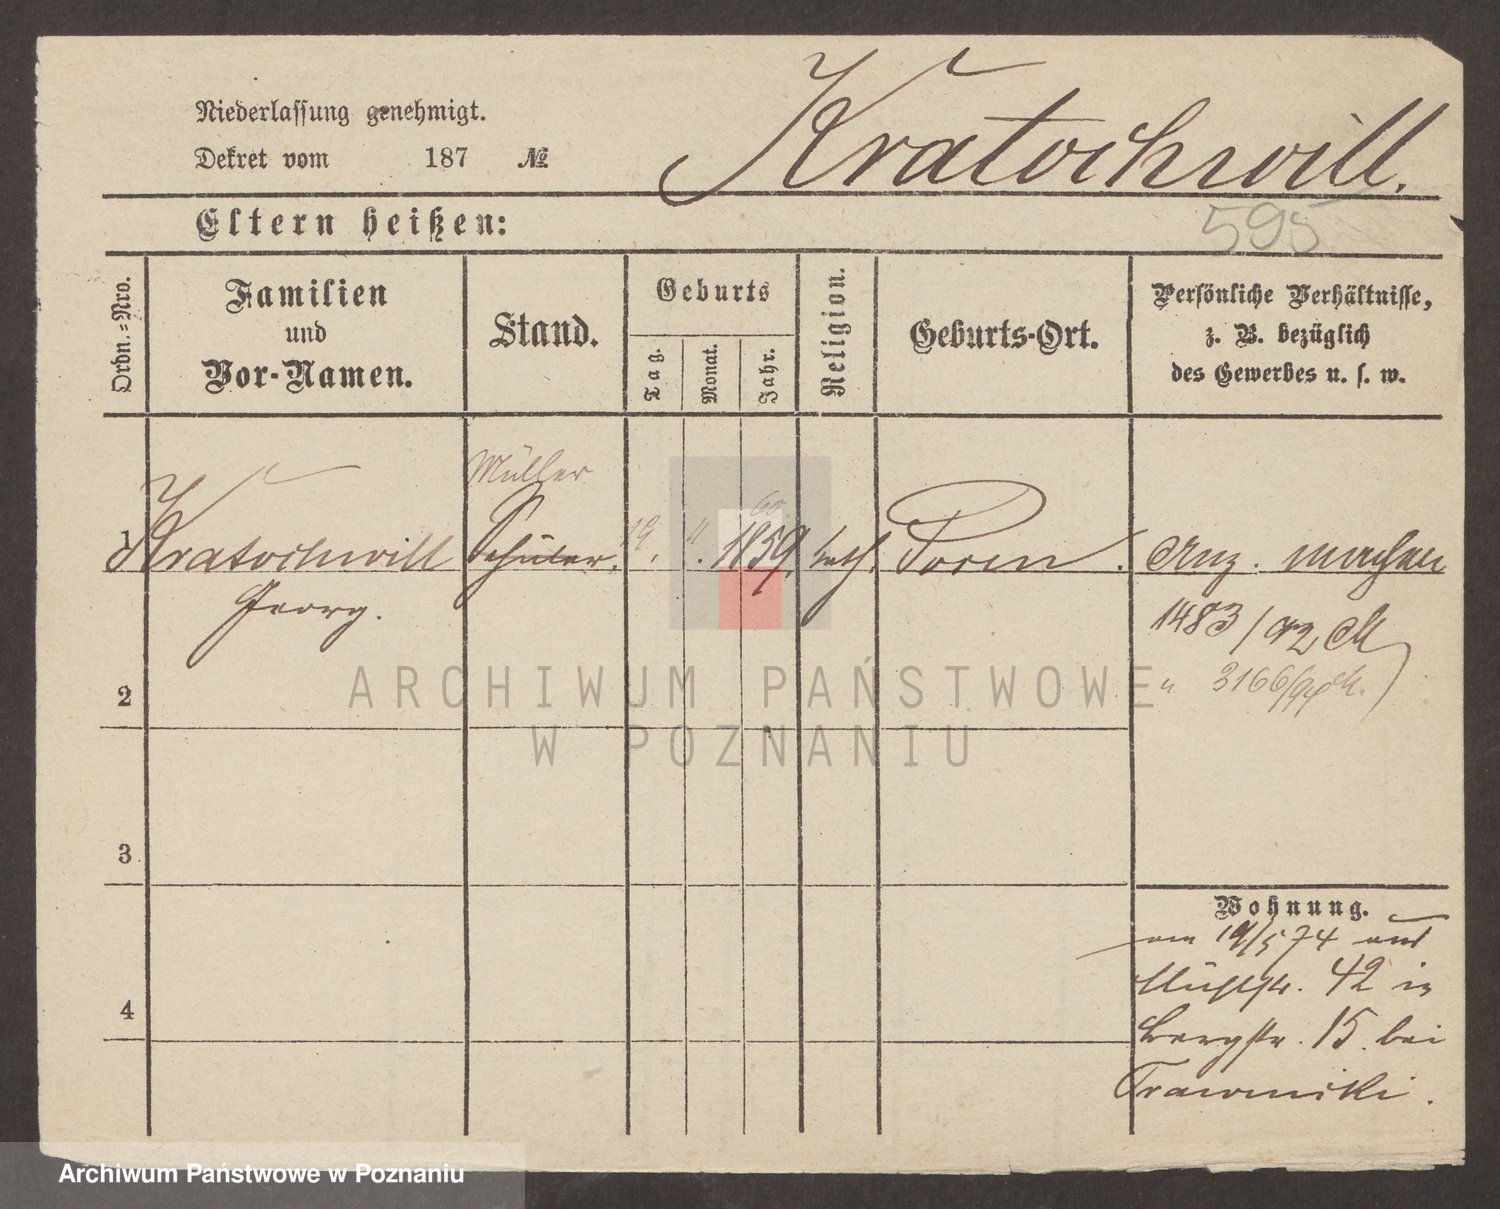 Kratochwill.
Niederlassung genehmigt.
Dekret vom 187 №
595
Eltern heißen:
Ordn.-Nro.
Familien
und
Vor-Namen.
Stand.
Geburts
Tag.
Monat.
Jahr.
Religion.
Geburts-Ort.
Persönliche Verhältnisse,
z. B. bezüglich
des Gewerbes u. s. w.
Müller
60.
1 Kratochwill Schüler. 19. 4. 1859. kath. Posen. Anz.
Georg.
1483/92 M
u 3166/
2
3
4
Wohnung.
am 19/5 74 aus
Mühlstr. 42 in
Bergstr. 15. bei
ARCHIWUM PAŃSTWOWE
W POZNANIU
Archiwum Państwowe w Poznaniu